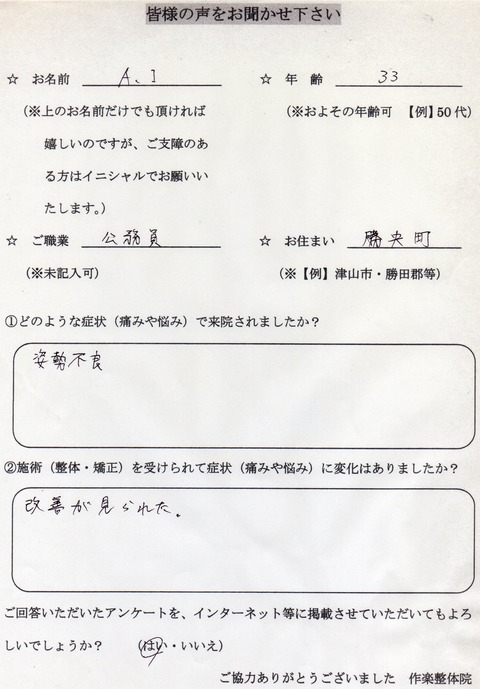 皆様の声をお聞かせ下さい
☆ お名前 A.I ☆ 年 齢 33
(※上のお名前だけでも頂ければ (※およその年齢可 【例】50代)
嬉しいのですが、ご支障のあ
る方はイニシャルでお願いい
たします。)
☆ ご職業 公務員 ☆ お住まい 勝央町
(※未記入可) (※【例】津山市・勝田郡等)
①どのような症状(痛みや悩み)で来院されましたか?
姿勢不良
②施術(整体・矯正)を受けられて症状(痛みや悩み)に変化はありましたか?
改善が見られた。
ご回答いただいたアンケートを、インターネット等に掲載させていただいてもよろ
しいでしょうか? (はい・いいえ)
ご協力ありがとうございました 作楽整体院